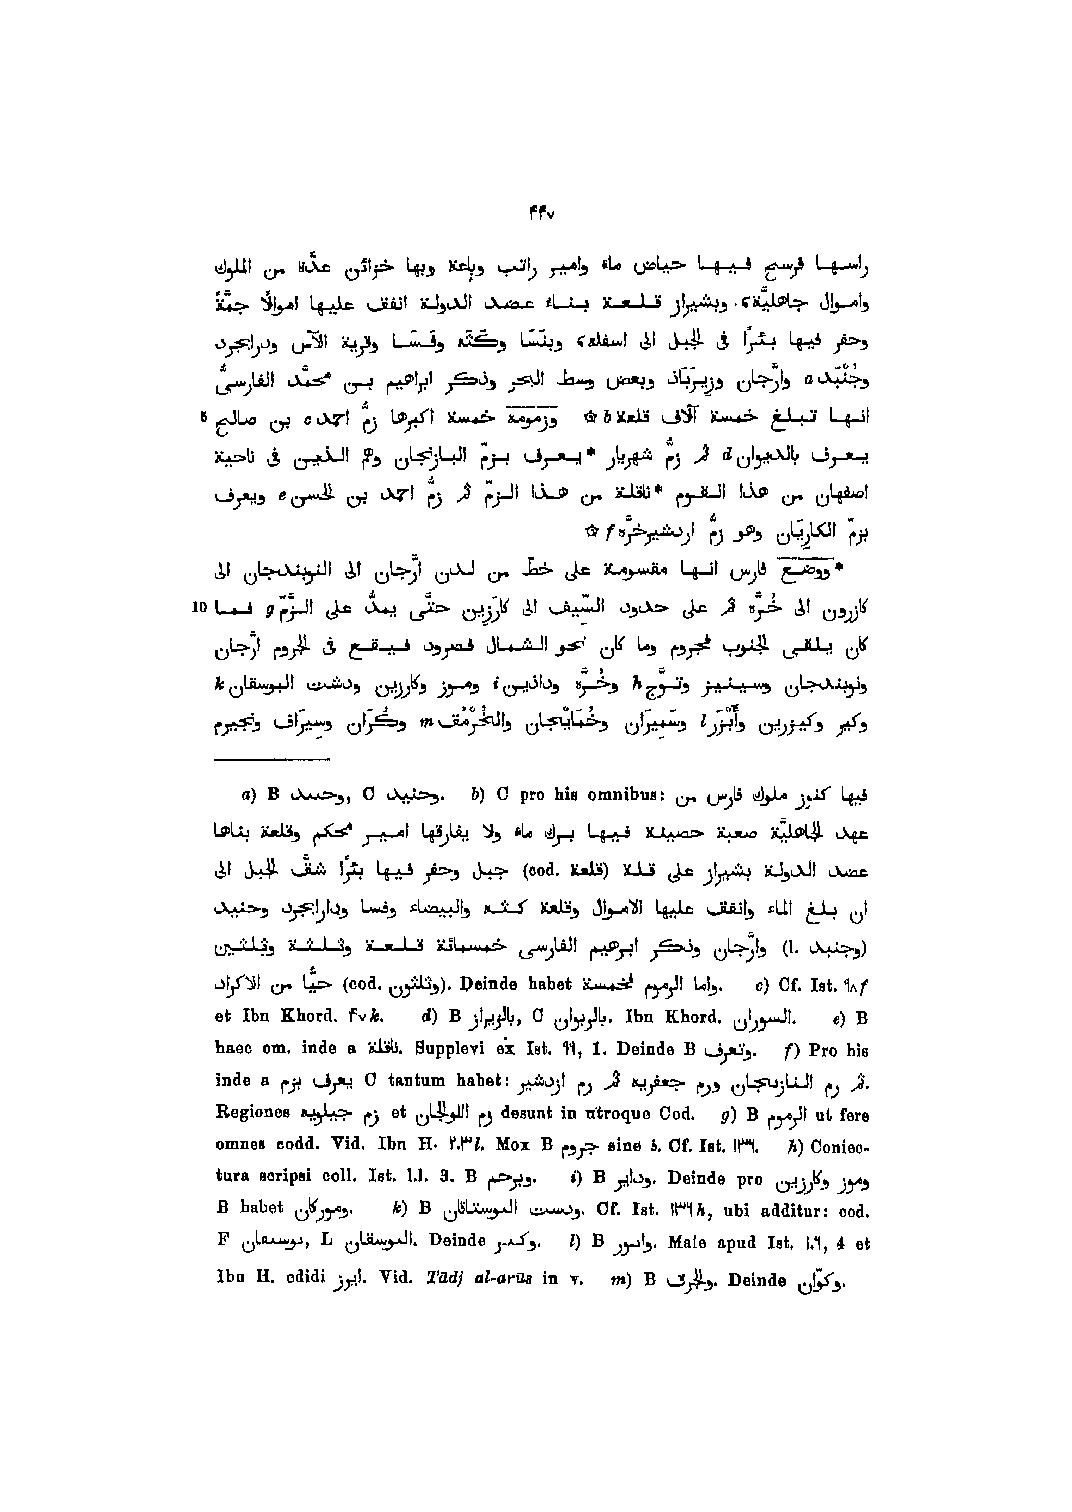 ۴۴۷
راسها فرسخ فيها حياض ماء وامير راتب وباعة وبها خزائن عدّة من الملوك
واموال جاهليّة، وبشيراز قلعة بناء عضد الدولة انفق عليها اموالًا جمّة
وحفر فيها بئرًا فى الجبل الى اسفله، وبنَسَا وكَثَه وفَسَا وقرية الآس ودرابجرد
وجُنْبَد a وارَّجان وزيرَباذ وبعض وسط البحر وذكر ابراهيم بن محمَّد الفارسىُّ
انها تبلغ خمسة آلاف قلعة b ☆ وزمومة خمسة اكبرها زمُّ احمد c بن صالح 5
يعرف بالديوان d ثمَّ زمُّ شهريار *يعرف بزمّ البازنجان وهم الذين فى ناحية
اصفهان من هذا القوم *ناقلة من هذا الزمّ ثمَّ زمُّ احمد بن الحسن e ويعرف
بزمّ الكاريَان وهو زمُّ اردشيرخرَّه f ☆
*ووضع فارس انها مقسومة على خطّ من لدن ارَّجان الى النوبندجان الى
كازرون الى خُرَّه ثمَّ على حدود السِّيف الى كارَزين حتَّى يمدَّ على الزَّمّ g فما 10
كان يلقى الجنوب فجروم وما كان نحو الشمال فصرود فيقع فى الجروم ارَّجان
ونوبندجان وسينيز وتوَّج h وخُرَّه وداذين i ومور وكارزين ودشت البوسقان k
وكير وكيزرين وأَبْزَر l وسَمِيرَان وخُمَايْجان والخُرْمُق m وكُرَان وسِيرَاف ونجيرم
a) B وحسد, C وحنيد. b) C pro his omnibus: فيها كنوز ملوك فارس من
عهد الجاهليَّة صعبة حصينة فيها برك ماء ولا يفارقها امير محكم وقلعة بناها
عضد الدولة بشيراز على قلة (cod. قلعة) جبل وحفر فيها بئرًا شقَّ الجبل الى
ان بلغ الماء وانفق عليها الاموال وقلعة كثه والبيضاء وفسا ودارابجرد وحنيد
(l. وجنبد) وارَّجان وذكر ابرهيم الفارسى خمسمائة قلعة وثلثة وثلثين
حيًّا من الاكراد (cod. وثلثون). Deinde habet واما الرموم فخمسة. c) Cf. Ist. ۹۸f
et Ibn Khord. ۴۷k. d) B بالزيراز, C بالريوان. Ibn Khord. السوران. e) B
haec om. inde a ناقلة. Supplevi ex Ist. ۹۹, 1. Deinde B وتعرف. f) Pro his
inde a يعرف بزم C tantum habet: ثمّ رم البازنجان ورم جعفريه ثمّ رم ازدشير.
Regiones زم جيلويه et رم اللوالجان desunt in utroque Cod. g) B الرموم ut fere
omnes codd. Vid. Ibn H. ۲۰۳l. Mox B جروم sine ف. Cf. Ist. ۱۳۶. h) Coniec-
tura scripsi coll. Ist. l.l. 3. B وبرحم. i) B ودابر. Deinde pro ومور وكارزين
B habet وموركان. k) B ودست البوستاقان. Cf. Ist. ۱۳۶h, ubi additur: cod.
F بوسقان, L البوسقان. Deinde وكير. l) B وابور. Male apud Ist. ۱۰۶, 4 et
Ibn H. edidi ابرز. Vid. Tâdj al-arûs in v. m) B والخرق. Deinde وكوّان.